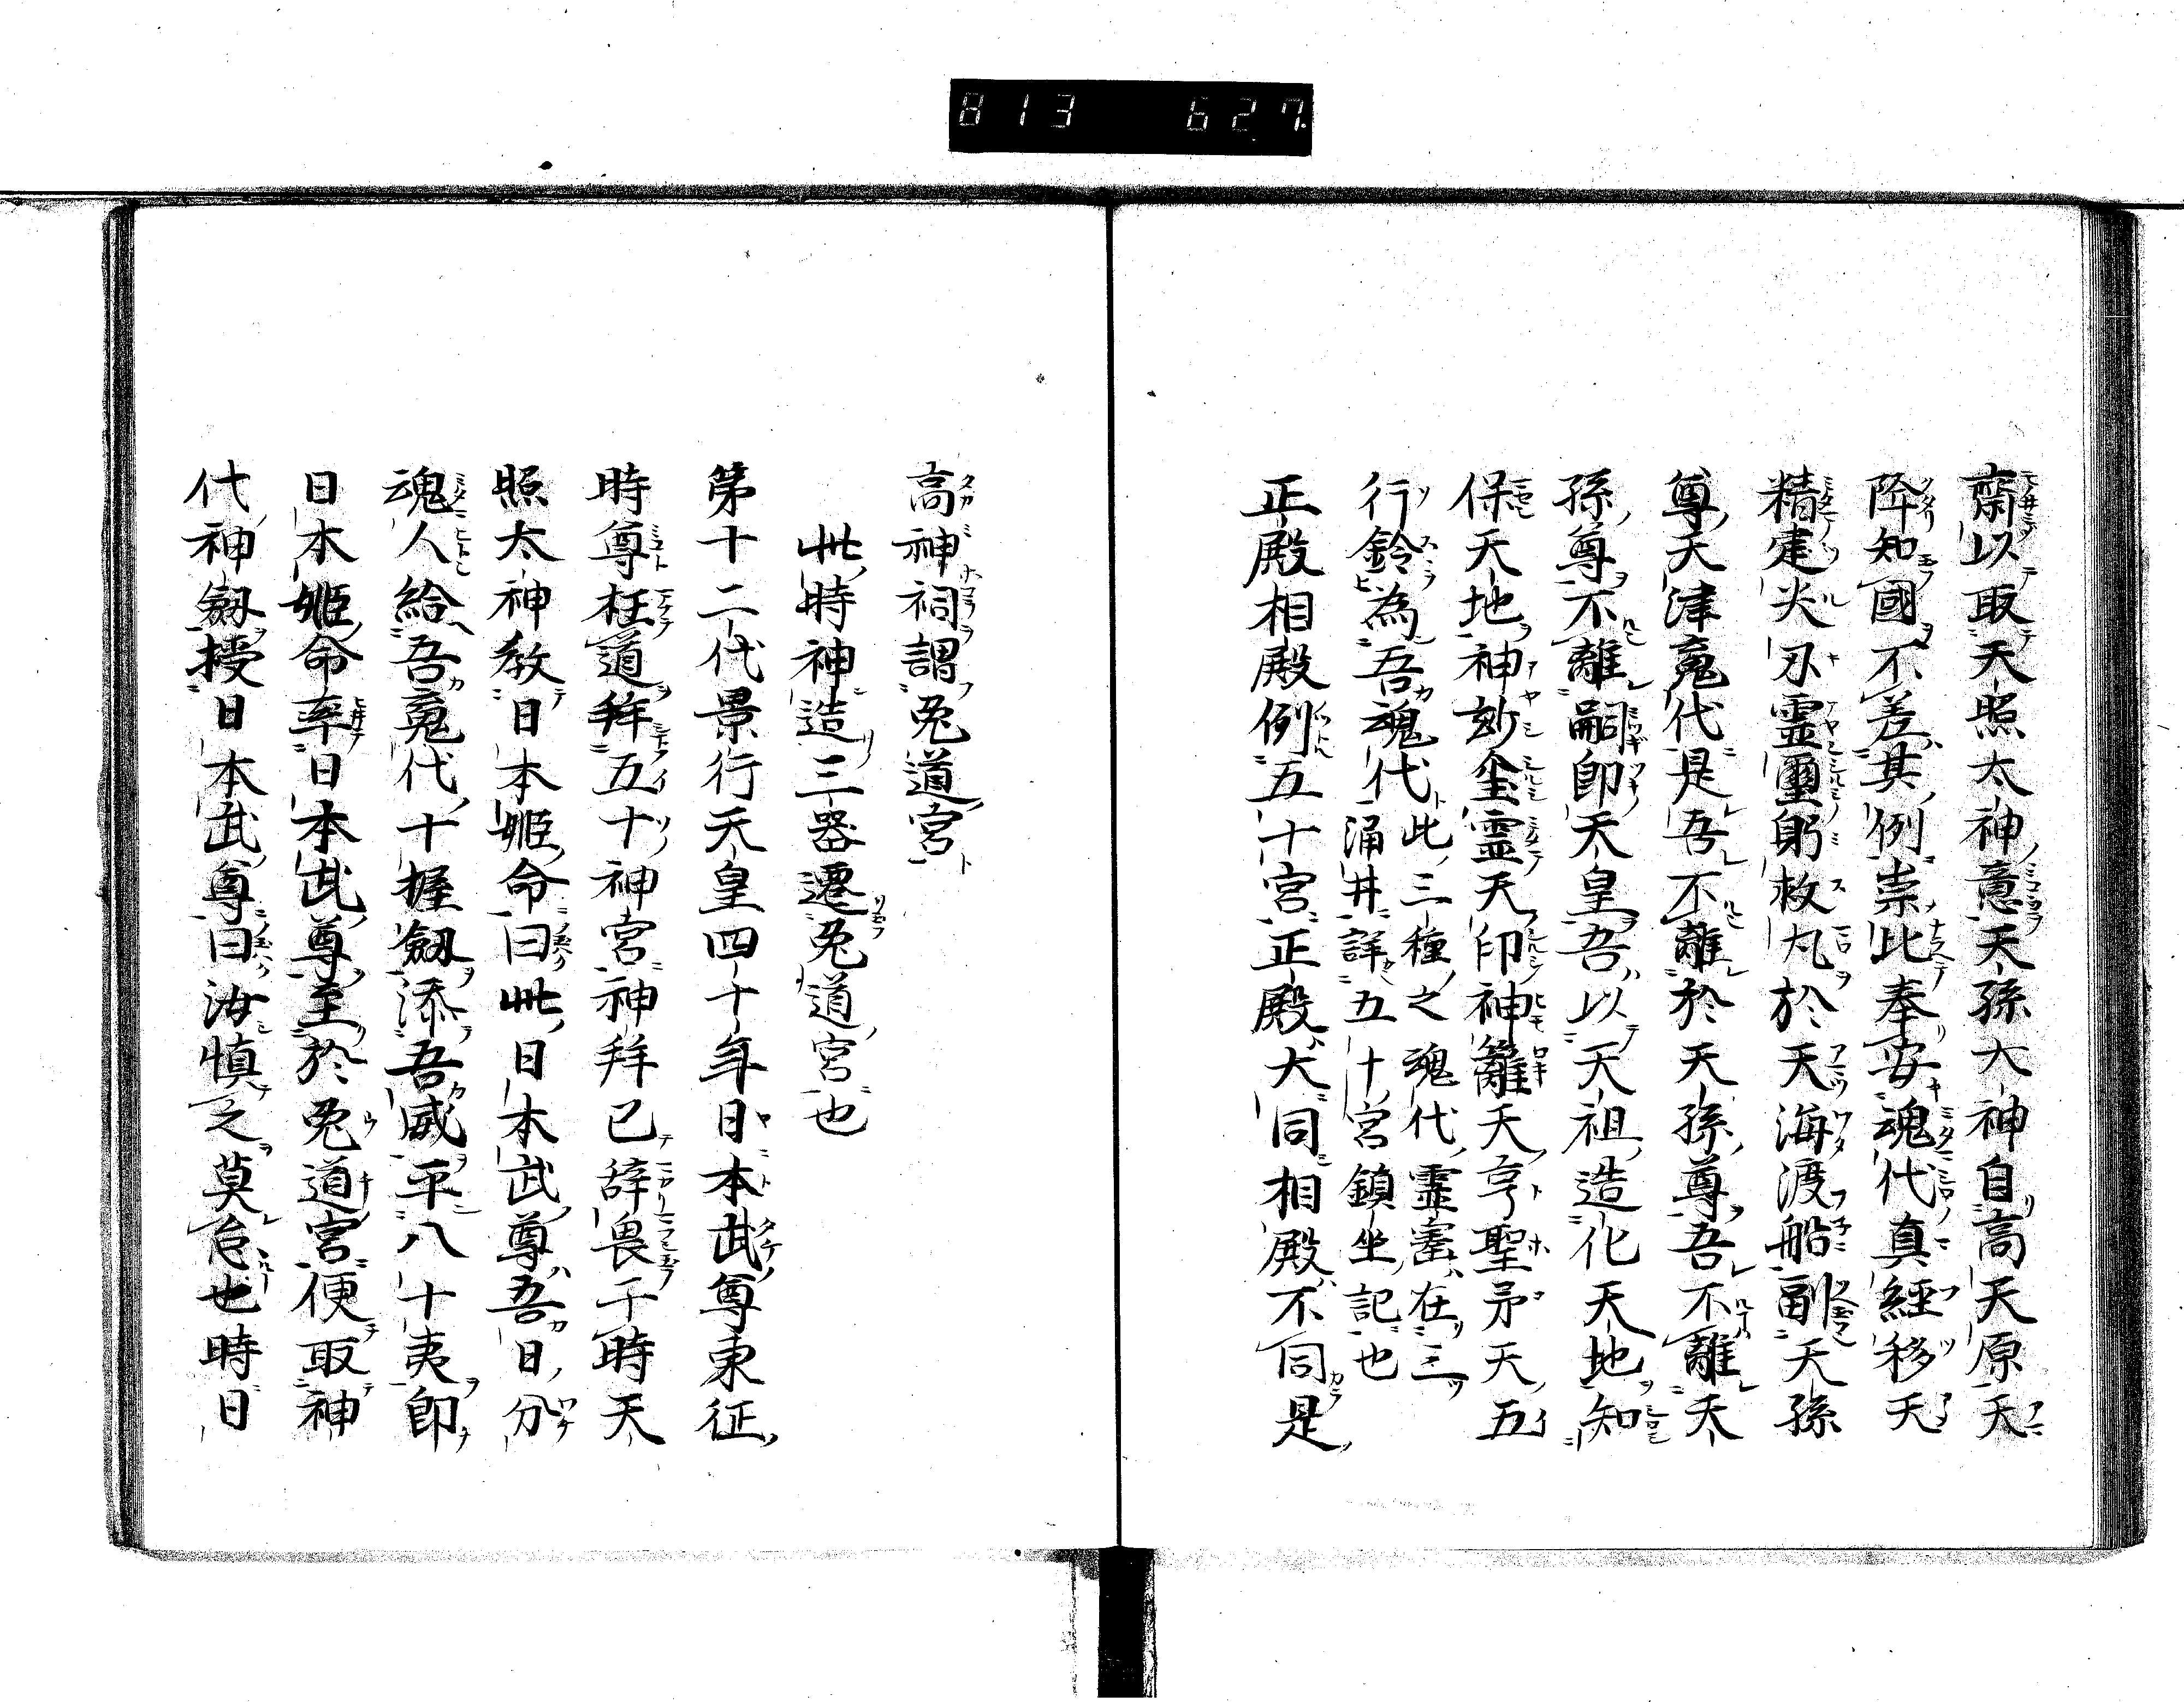 813 627.
齋以取天照太神意天孫大神自高天原天
降知國不差其例祟此奉安魂代真經移天
精建尖刃霊璽躬救凡於天海渡船副天孫
尊天津䰟代是吾不離於天孫尊吾不離天
孫尊不離嗣即天皇吾以天祖造化天地知
保天地神妙璽霊天印神籬天亨聖矛天五
行鈴為吾魂代此三種之魂代霊密在三
涌井詳五十宮鎮坐記也
正殿相殿例五十宮正殿大同相殿不同是
高神祠謂兎道宮
此時神造三器遷兎道宮也
第十二代景行天皇四十年日本武尊東征
時尊枉道拜五十神宮神拜已辞畏于時天
照太神教日本姫命曰此日本武尊吾日分
魂人給吾䰟代十握劔添吾威平八十夷即
日本姫命率日本武尊至於兎道宮便取神
代神劔授日本武尊曰汝慎之莫怠也時日